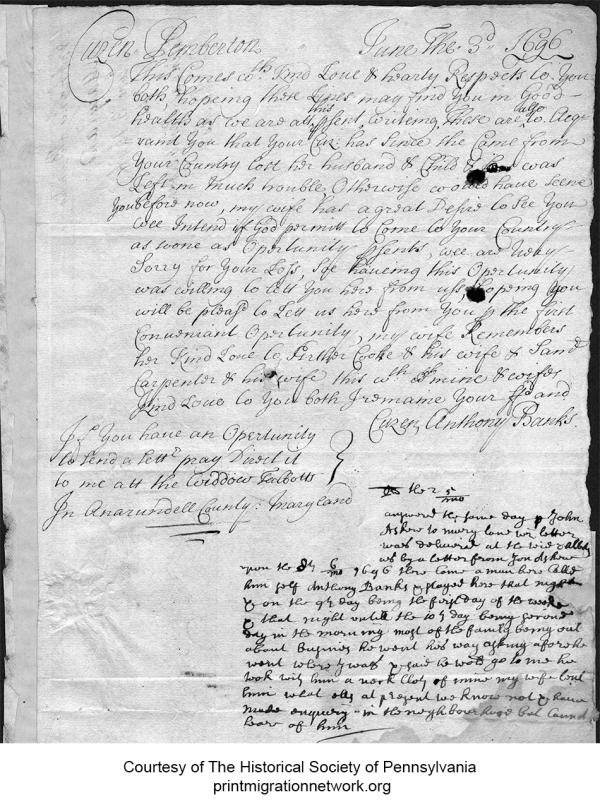 Cuzen Pemberton June The 3d 1696
This Comes wth Kind Love & hearty Respects to You
both hopeing these Lynes may find You in Good
health as wee are all this psent writeing these are also to Acq
vaint You that Your Cuz: has Since she Came from
Your Country lost her husband & Child & was
Left in Much trouble Otherwise would have Seene
You before now, my wife has a great Desire to See You
wee Intend if God permitt to Come to Your Country
as soone as Opertunity psents, wee are Very
Sorry for Your Loss, Sge haueing this Opertunity
was willing to lett You here from uss, hopeing You
will be pleasd to Lett us here from You p the first
Conveniant Opertunity, my wife Remembers
her Kind Love to Cooke & his wife & Samll
Carpenter & his wife this wth mine & wifes
Kind Love to You both I remane Your ffd and
Cuzen Anthony Banks.
If You have an Opertunity
to send a lettr may Direct it
to me att the Widdow Talbotts
In Anarundell County: Maryland
the 2 5/mo
answered the same day p John
Askew to mary lane wr letter
was delivered at the wid
ws by a letter from Jon Askew
upon the 8th 6/mo 1696 there Came a man here Calld
him self Anthony Banks & stayed here that night
& on the 9th day being the first day of the weeke
& that night untill the 10th day being second
day in the morning most of the family being out
about Busines he went his way asking afore he
went where I was & said he wod go to me he
took with him a neck Cloth of mine my wife lent
him what els at present we know not & have
made enquiry in the neighbourhood but Cannot
heare of him
Courtesy of The Historical Society of Pennsylvania
printmigrationnetwork.org